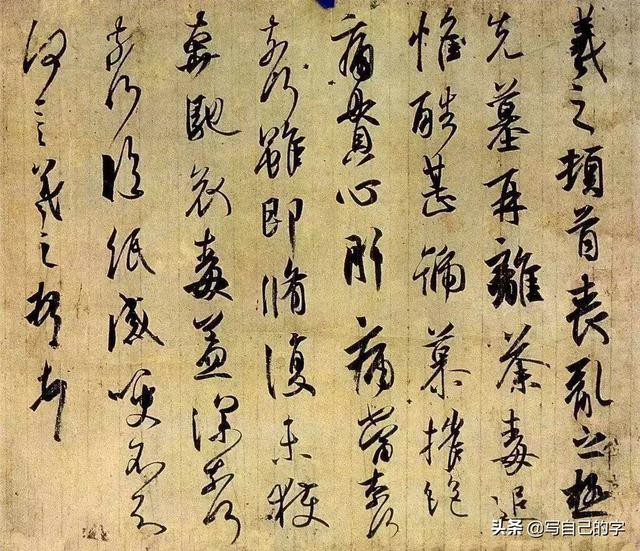 羲之頓首喪亂之極
先墓再離荼毒追
惟酷甚號慕摧絕
痛貫心肝痛當奈何
奈何雖即脩復未獲
奔馳哀毒益深奈何
奈何臨紙感哽不知
何言羲之頓首頓首
头条 @写自己的字